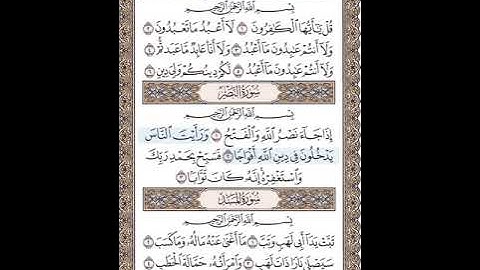 بِسْمِ ٱللَّهِ ٱلرَّحْمَٰنِ ٱلرَّحِيمِ
قُلْ يَٰٓأَيُّهَا ٱلْكَٰفِرُونَ ١ لَآ أَعْبُدُ مَا تَعْبُدُونَ ٢
وَلَآ أَنتُمْ عَٰبِدُونَ مَآ أَعْبُدُ ٣ وَلَآ أَنَا۠ عَابِدٌ مَّا عَبَدتُّمْ ٤
وَلَآ أَنتُمْ عَٰبِدُونَ مَآ أَعْبُدُ ٥ لَكُمْ دِينُكُمْ وَلِيَ دِينِ ٦
سُورَةُ النَّصْرِ
بِسْمِ ٱللَّهِ ٱلرَّحْمَٰنِ ٱلرَّحِيمِ
إِذَا جَآءَ نَصْرُ ٱللَّهِ وَٱلْفَتْحُ ١ وَرَأَيْتَ ٱلنَّاسَ
يَدْخُلُونَ فِى دِينِ ٱللَّهِ أَفْوَاجًا ٢ فَسَبِّحْ بِحَمْدِ رَبِّكَ
وَٱسْتَغْفِرْهُ إِنَّهُۥ كَانَ تَوَّابًۢا ٣
سُورَةُ المَسَدِ
بِسْمِ ٱللَّهِ ٱلرَّحْمَٰنِ ٱلرَّحِيمِ
تَبَّتْ يَدَآ أَبِى لَهَبٍ وَتَبَّ ١ مَآ أَغْنَىٰ عَنْهُ مَالُهُۥ وَمَا كَسَبَ ٢
سَيَصْلَىٰ نَارًا ذَاتَ لَهَبٍ ٣ وَٱمْرَأَتُهُۥ حَمَّالَةَ ٱلْحَطَبِ ٤